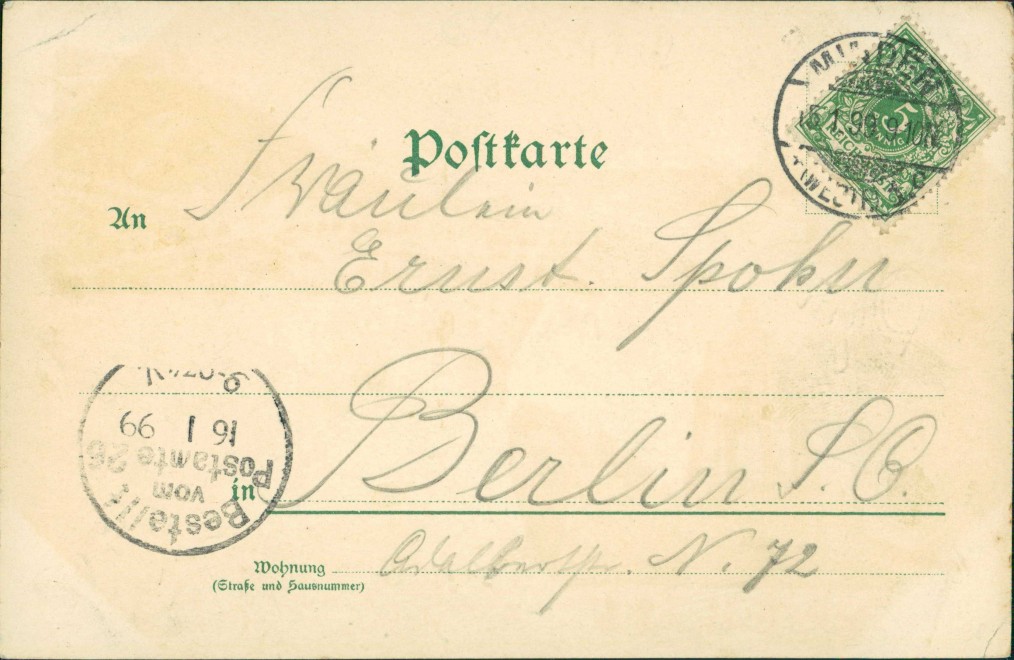 Postkarte
An
Fräulein
Ernst. Spohn
in Berlin S.O.
Wohnung Adalbertstr. N. 72
(Straße und Hausnummer)
MINDEN
15.1.99 9-10N
(WESTF.)
5
REICHSPOST
Bestellt
vom
Postamte 26
16 1 99